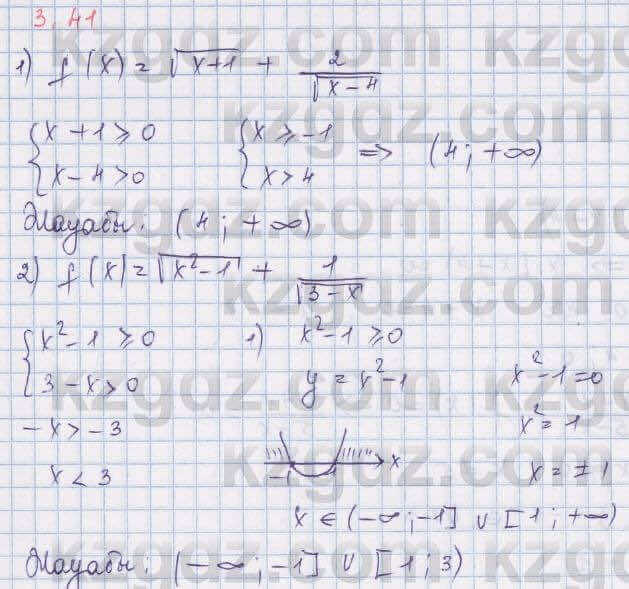 3.41
1) f(x) = √(x+1) + 2/√(x-4)
{x + 1 ≥ 0 {x ≥ -1 => (4; +∞)
{x - 4 > 0 {x > 4
Жауабы: (4; +∞)
2) f(x) = √(x²-1) + 1/√(3-x)
{x² - 1 ≥ 0 1) x² - 1 ≥ 0
{3 - x > 0 y = x² - 1 x² - 1 = 0
-x > -3 x² = 1
x < 3 -1 1 x x = ±1
x ∈ (-∞; -1] ∪ [1; +∞)
Жауабы: (-∞; -1] ∪ [1; 3)
kzgdz.com